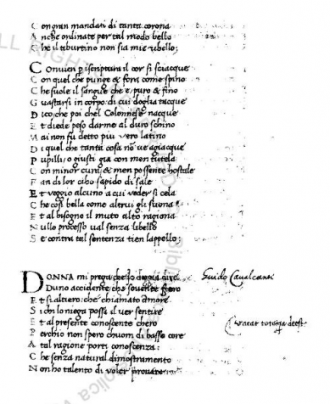 C on gran mandati di tanta corona
A nche ordinate per tal modo bello
C he il tiburtino non sia mie ribello;
C on quel che punge & feri come spino
C he suole il sangue che e puro & fino
G uastarsi in corpo di cui doglia nacque
D ico che poi chel Colonnese nacque
E t diede peso darme al duro schino
M ai non fu detto piu vero latino
D i quel che tanta cosa
P upilli o giusti gia con men tutela
C on minor cura & men possente hostale
F an di lor cibo sapido di sale
E t veggio alcuno a cui veder si cela
C he cosi bella come altrui gli suona
E t al bisogno il muto alto ragiona
N ullo processo val senza libello
S e contra tal sentenza tien lappello:
DONNA mi prega
Guido Cavalcanti
D uno accidente che sovente fiero
E t si altiero: che chiamato amore
S i chi lo niega possi il ver sentire
E t al presente conoscente chero
P erchio non spero chuom di basso core
A tal ragione porti conoscenza:
C he senza natural dimostramento
N on ho talento di voler provare